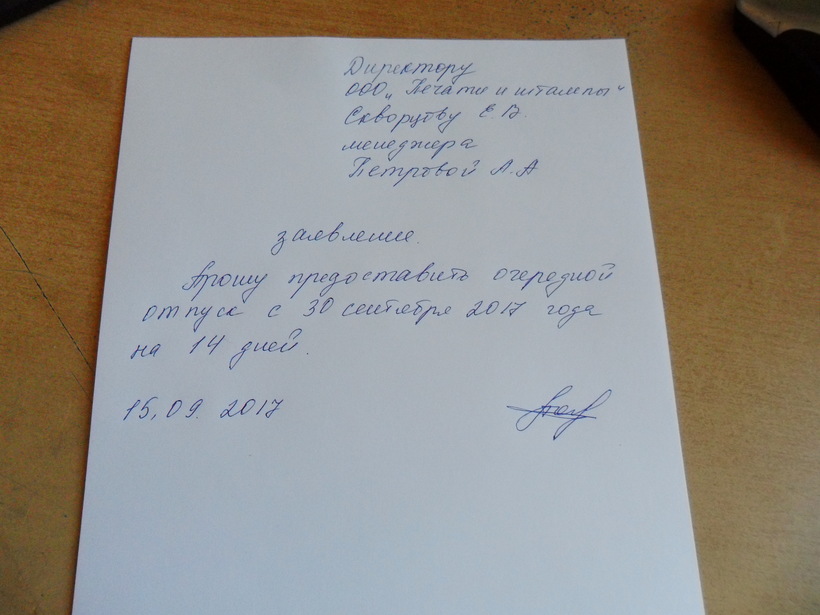 Директору
ООО „Печати и штампы"
Скворцову Е.В.
менеджера
Петровой Л.А
заявление.
Прошу предоставить очередной
отпуск с 30 сентября 2017 года
на 14 дней.
15.09.2017